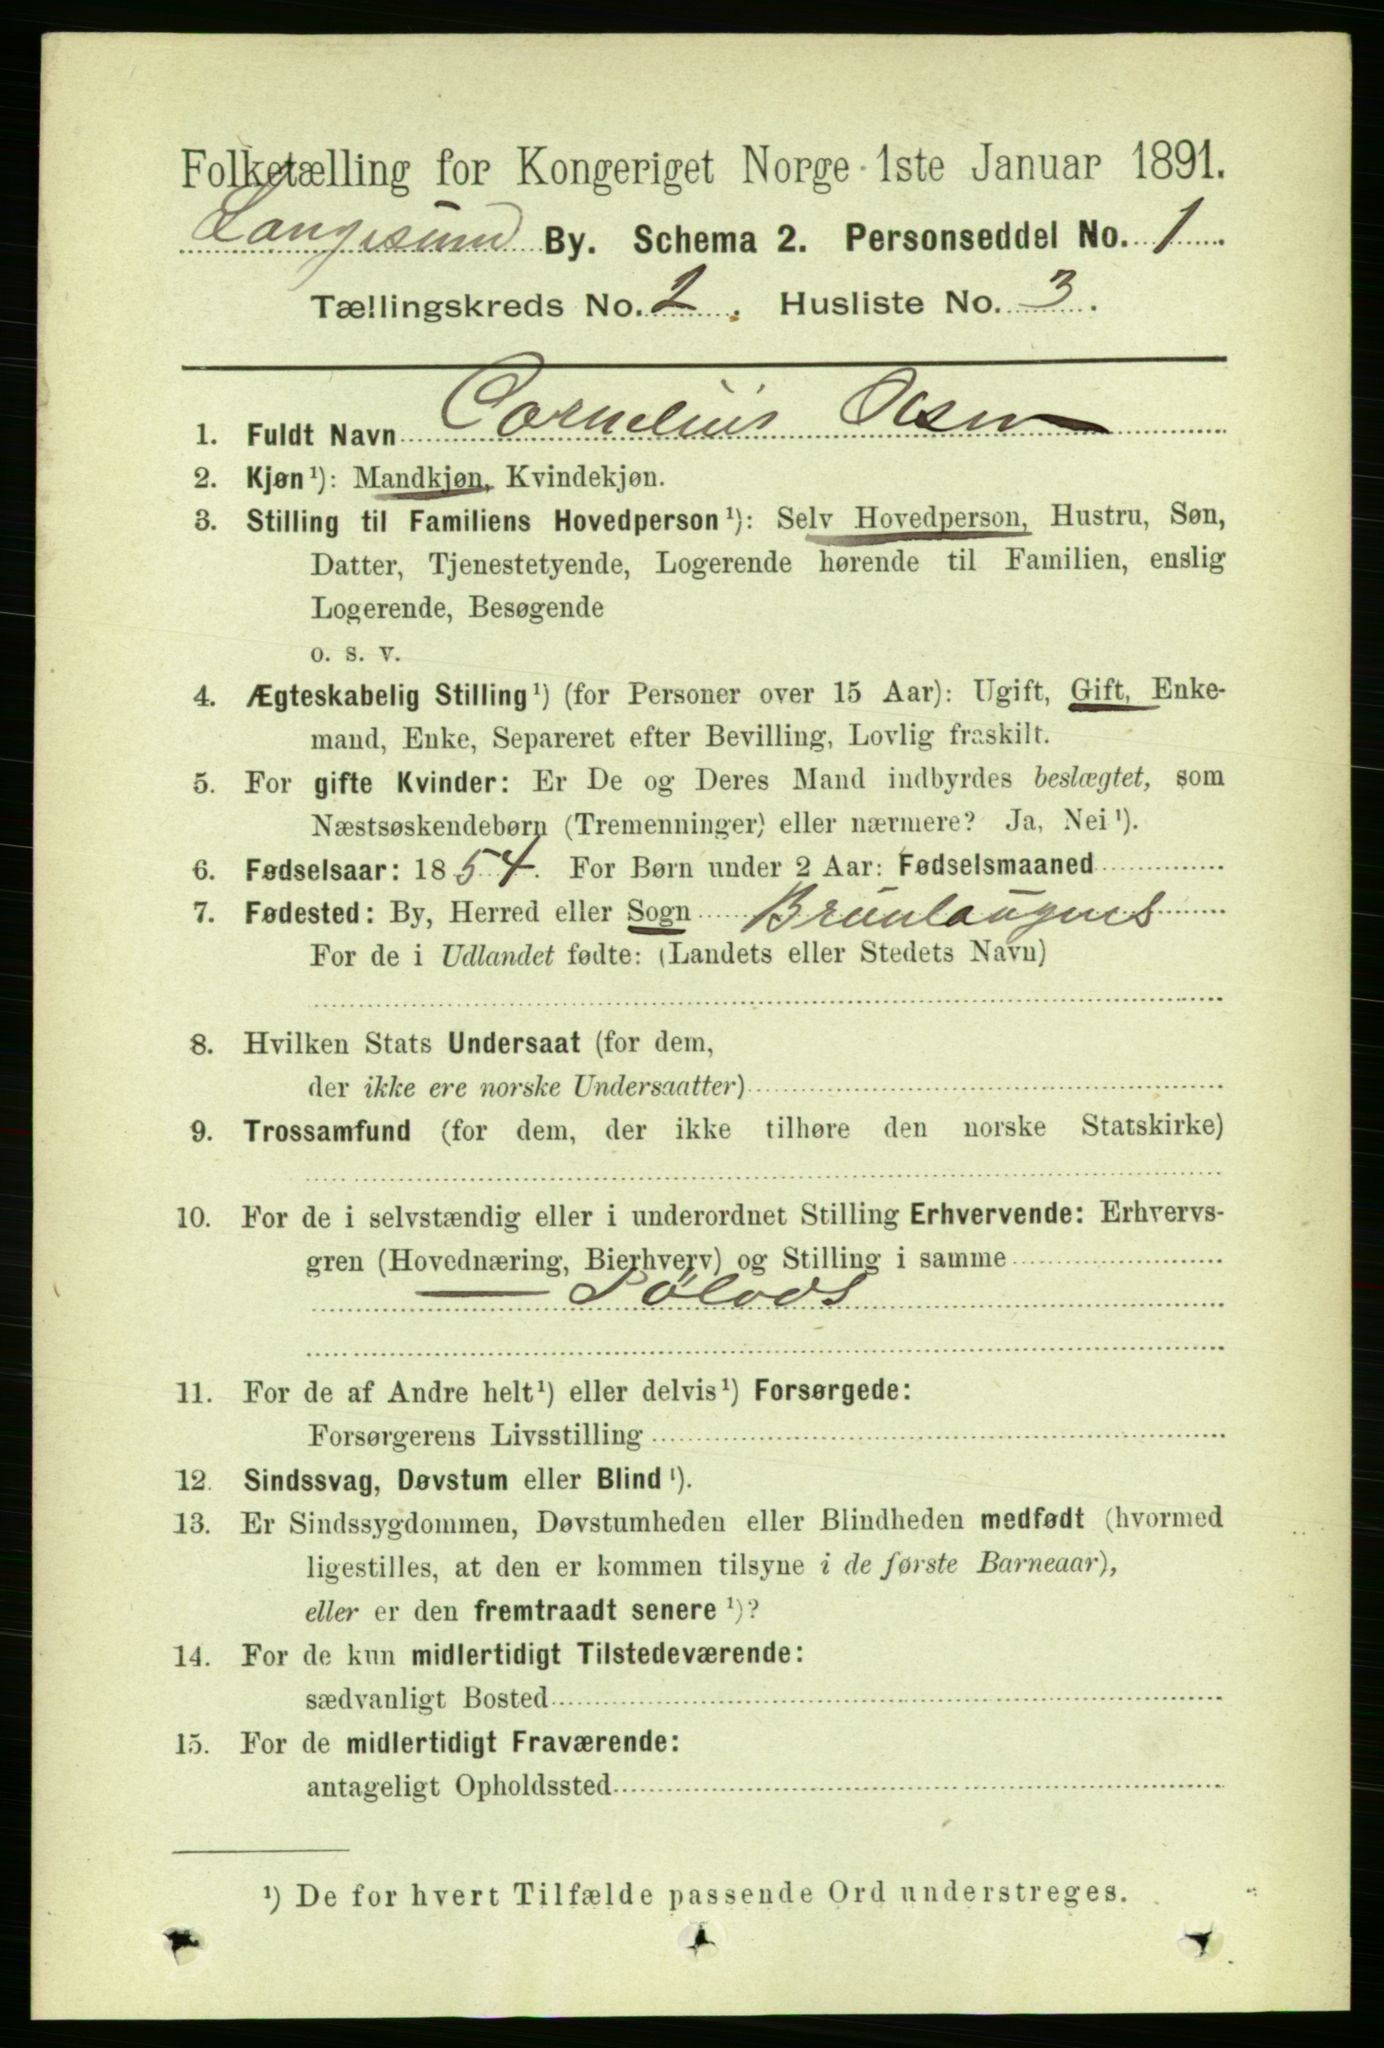 Folketælling for Kongeriget Norge 1ste Januar 1891.
Langesund By. Schema 2. Personseddel No. 1
Tællingskreds No. 2. Husliste No. 3.
1. Fuldt Navn Cornelius Olsen
2. Kjøn ¹): Mandkjøn, Kvindekjøn.
3. Stilling til Familiens Hovedperson ¹): Selv Hovedperson, Hustru, Søn,
Datter, Tjenestetyende, Logerende hørende til Familien, enslig
Logerende, Besøgende
o. s. v.
4. Ægteskabelig Stilling ¹) (for Personer over 15 Aar): Ugift, Gift, Enke-
mand, Enke, Separeret efter Bevilling, Lovlig fraskilt.
5. For gifte Kvinder: Er De og Deres Mand indbyrdes beslægtet, som
Næstsøskendebørn (Tremenninger) eller nærmere? Ja, Nei ¹).
6. Fødselsaar: 1854. For Børn under 2 Aar: Fødselsmaaned
7. Fødested: By, Herred eller Sogn Brunlaugnes
For de i Udlandet fødte: (Landets eller Stedets Navn)
8. Hvilken Stats Undersaat (for dem,
der ikke ere norske Undersaatter)
9. Trossamfund (for dem, der ikke tilhøre den norske Statskirke)
10. For de i selvstændig eller i underordnet Stilling Erhvervende: Erhvervs-
gren (Hovednæring, Bierhverv) og Stilling i samme
— Sølods
11. For de af Andre helt ¹) eller delvis ¹) Forsørgede:
Forsørgerens Livsstilling
12. Sindssvag, Døvstum eller Blind ¹).
13. Er Sindssygdommen, Døvstumheden eller Blindheden medfødt (hvormed
ligestilles, at den er kommen tilsyne i de første Barneaar),
eller er den fremtraadt senere ¹)?
14. For de kun midlertidigt Tilstedeværende:
sædvanligt Bosted
15. For de midlertidigt Fraværende:
antageligt Opholdssted
¹) De for hvert Tilfælde passende Ord understreges.